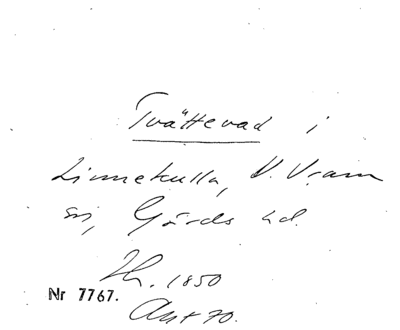 Tvättevad i
Linnekulla, V. Vram
sn, Gärds hd.
Th. 1850
Nr 7767.
Ant 70.